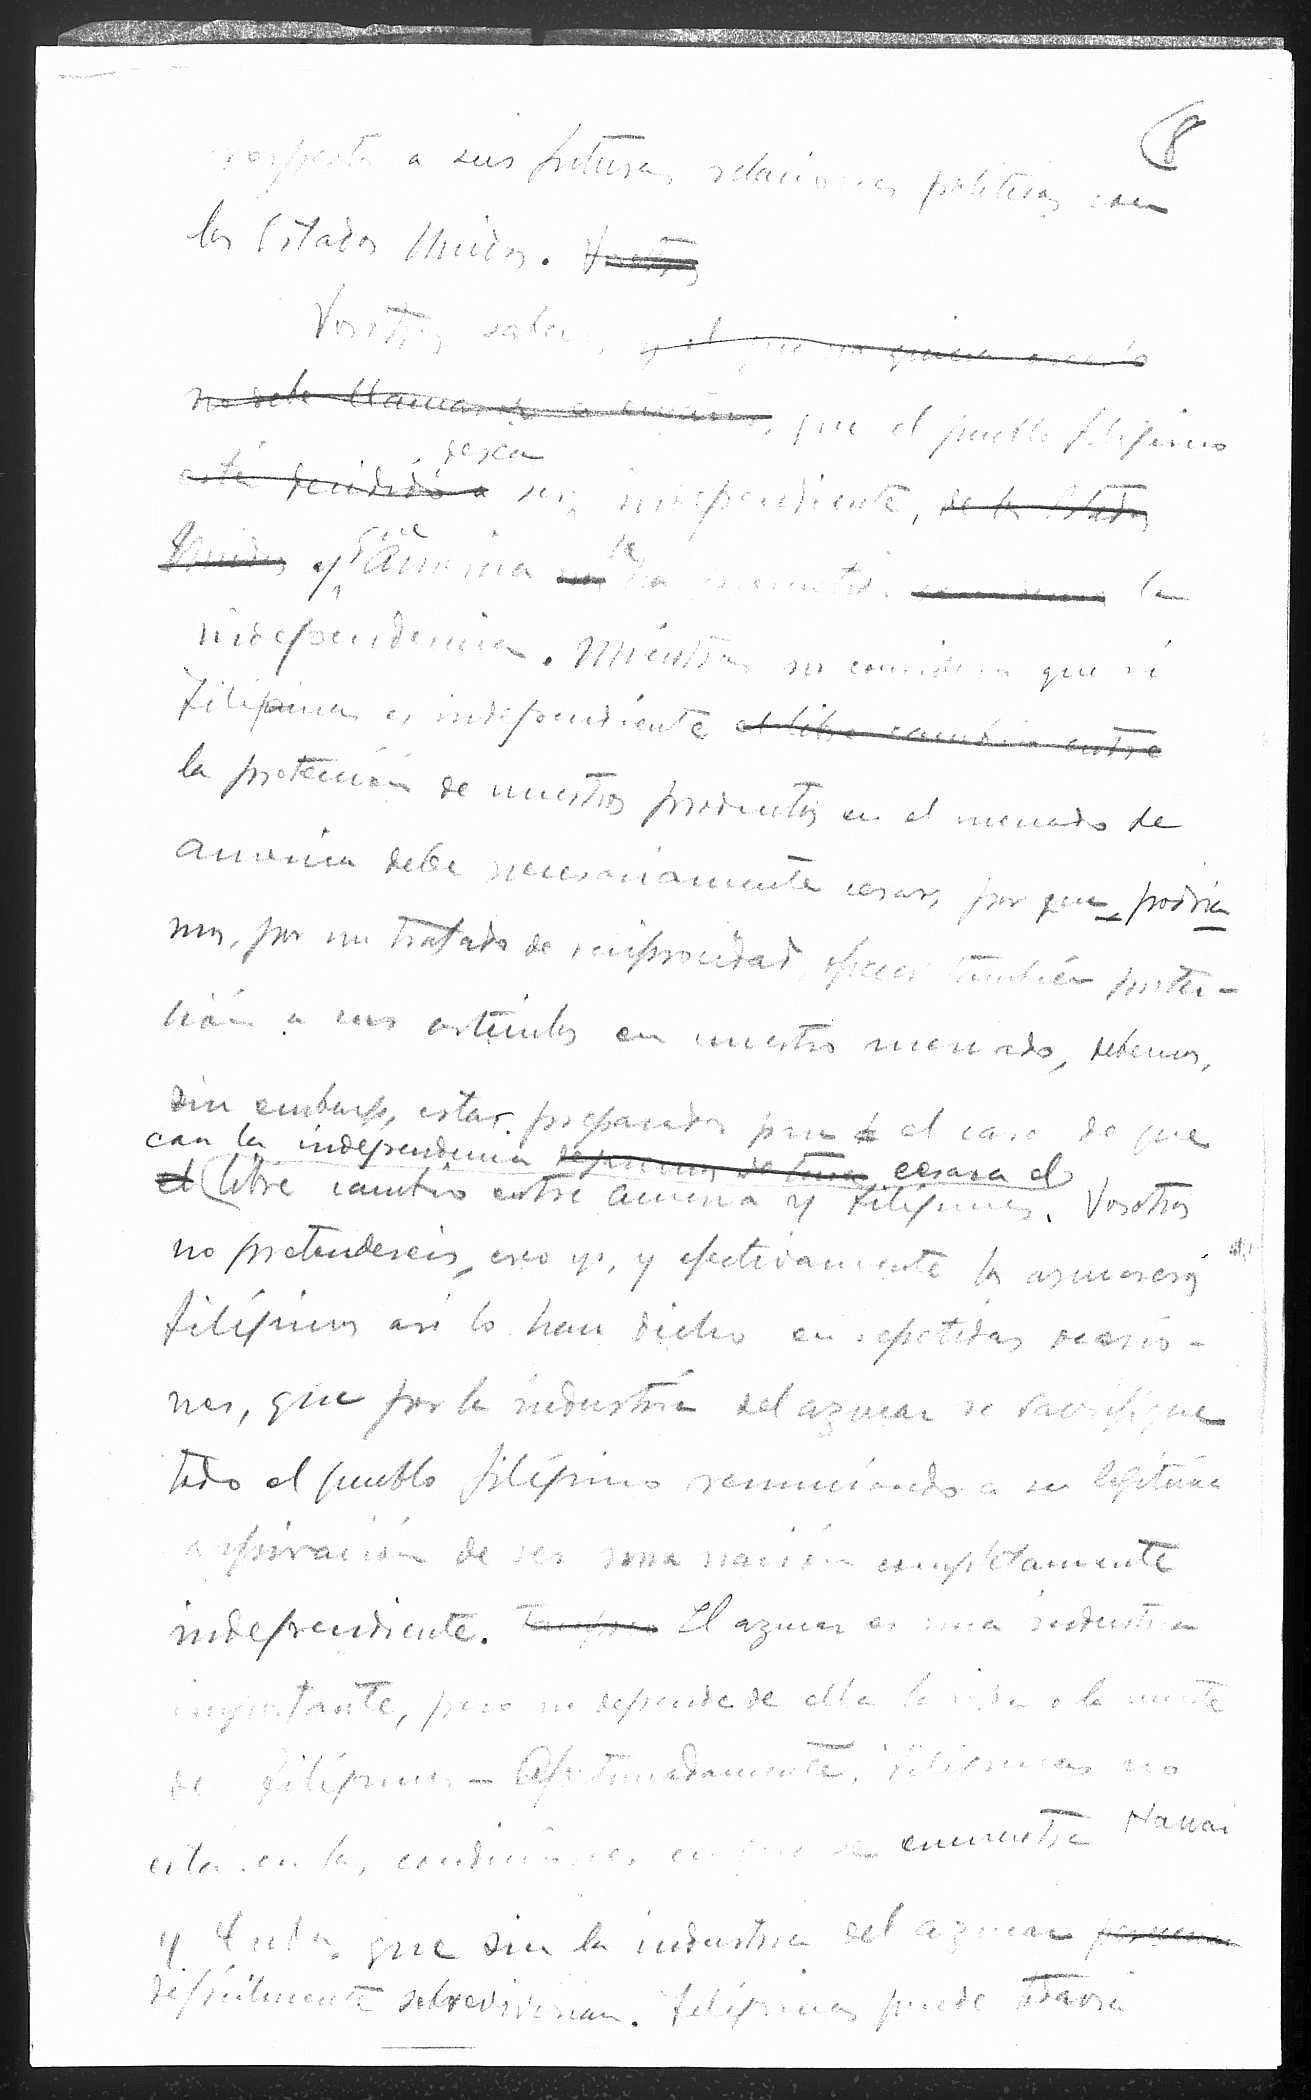 8
respecto a sus futuras relaciones politicas con
los Estados Unidos. Vosotros
Vosotros sabeis, y el que no quiera
no debe llamarse a engaño, que el pueblo filipino
desea
está decidido a ser independiente, de los Estados
que le
Unidos y America no ha prometido la
independencia. Mientras no considero que si
Filipinas es independiente el libre cambio entre
la protección de nuestros productos en el mercado de
America debe necesariamente cesar, por que podria
mos, por un tratado de reciprocidad, ofrecer también protec-
ción a sus articulos en nuestro mercado, debemos,
sin embargo, estar preparados para el caso de que
con la independencia cesara el
el libre cambio entre America y Filipinas. Vosotros
no pretendereis, creo yo, y efectivamente los azucareros
filipinos asi lo han dicho en repetidas ocasio-
nes, que por la industria del azucar se sacrifique
todo el pueblo filipino renunciando a su legitima
aspiración de ser una nación completamente
independiente. Tampoco El azucar es una industria
importante, pero no depende de ella la vida o la muerte
de Filipinas - Afortunadamente, Filipinas no
está en las condiciones en que se encuentra Hawai
y Cuba, que sin la industria del azucar
dificilmente sobrevivirian. Filipinas puede todavia